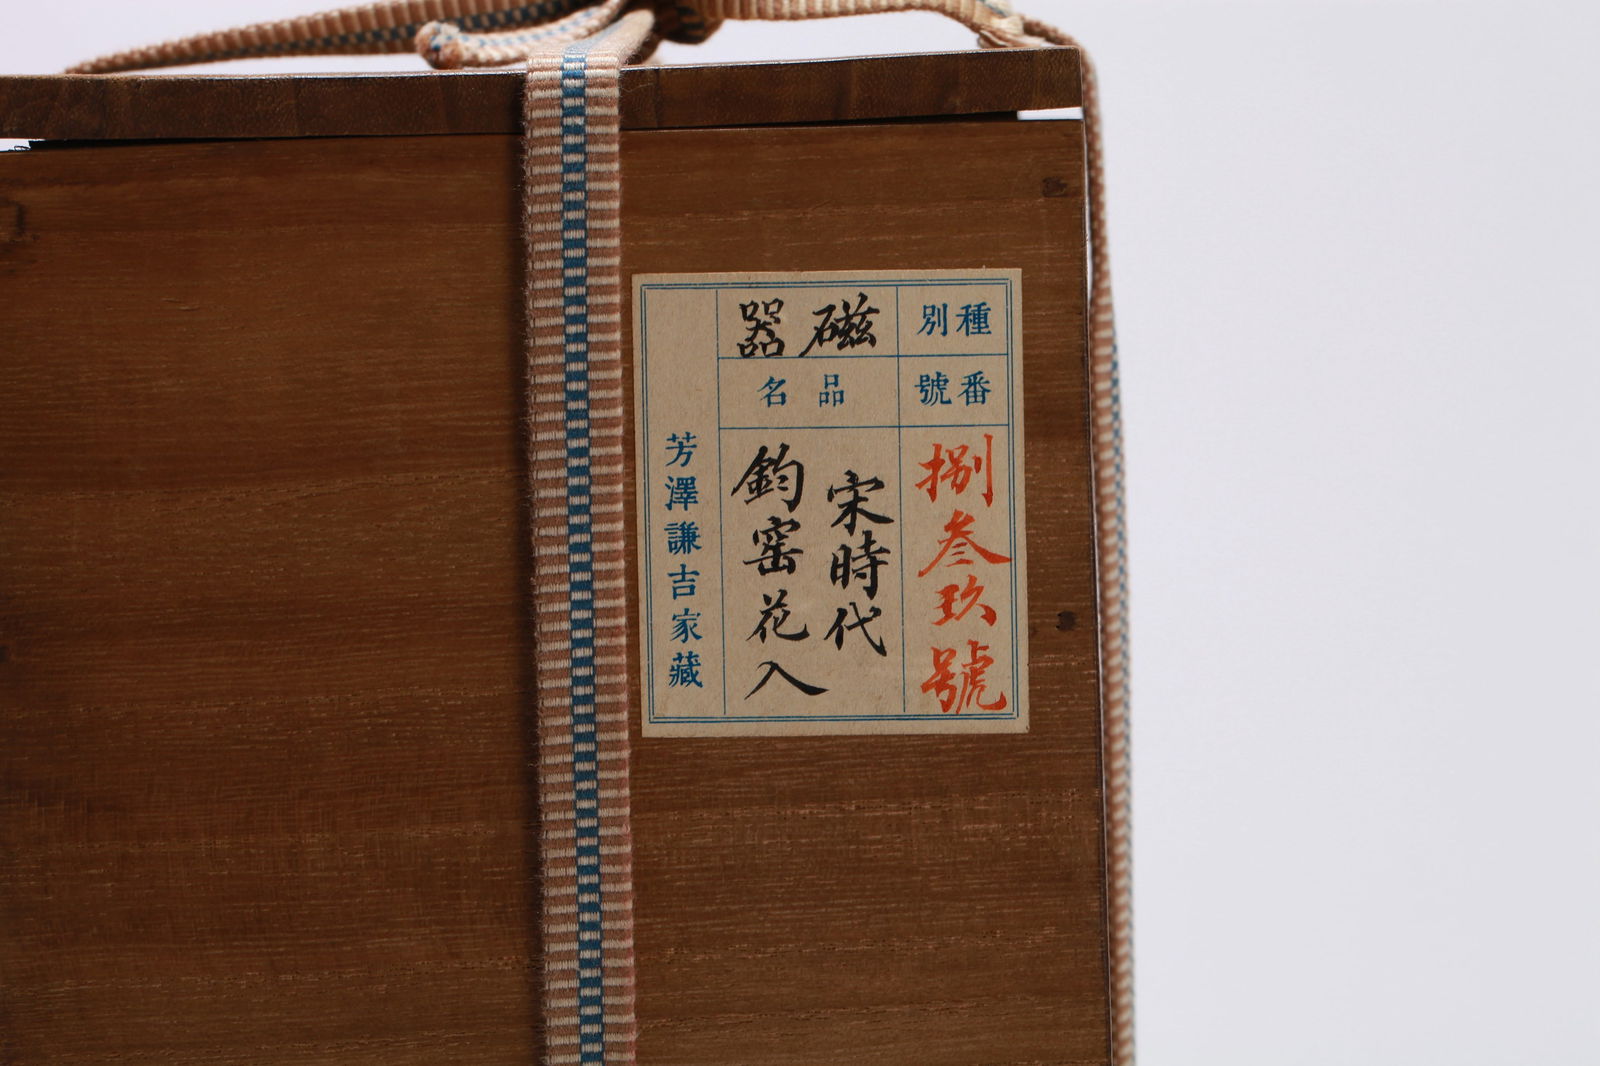 種別
磁器
番號
品名
捌叁玖號
宋時代
鈞窑花入
芳澤謙吉家藏